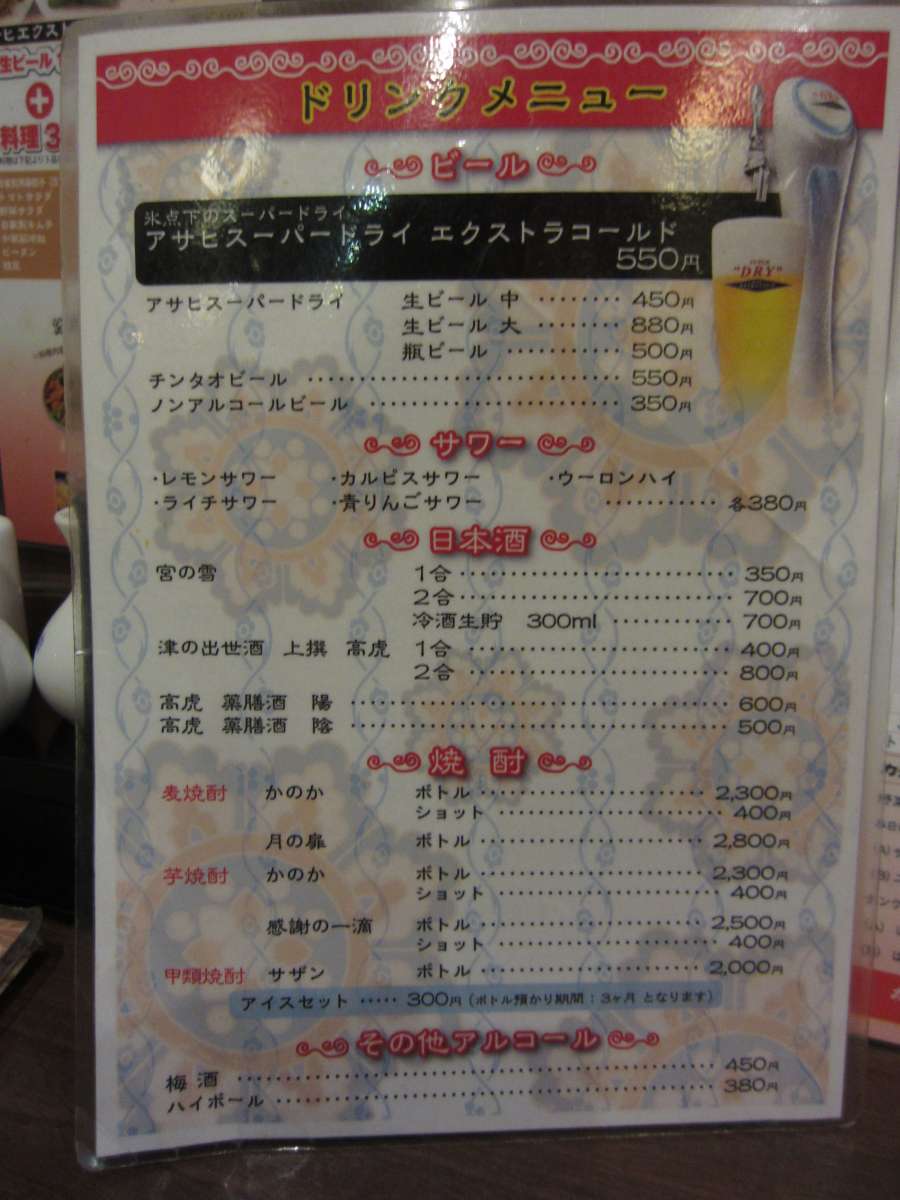 ドリンクメニュー
ビール
氷点下のスーパードライ
アサヒスーパードライ エクストラコールド
550円
アサヒスーパードライ 生ビール 中 ········· 450円
生ビール 大 ········· 880円
瓶ビール ············ 500円
チンタオビール ································ 550円
ノンアルコールビール ·························· 350円
サワー
・レモンサワー ・カルピスサワー ・ウーロンハイ
・ライチサワー ・青りんごサワー ············ 各380円
日本酒
宮の雪 1合 ···························· 350円
2合 ···························· 700円
冷酒生貯 300ml ············ 700円
津の出世酒 上撰 高虎 1合 ···························· 400円
2合 ···························· 800円
高虎 薬膳酒 陽 ········································ 600円
高虎 薬膳酒 陰 ········································ 500円
焼酎
麦焼酎 かのか ボトル ························ 2,300円
ショット ························ 400円
月の扉 ボトル ························ 2,800円
芋焼酎 かのか ボトル ························ 2,300円
ショット ························ 400円
感謝の一滴 ボトル ························ 2,500円
ショット ························ 400円
甲類焼酎 サザン ボトル ························ 2,000円
アイスセット ····· 300円 (ボトル預かり期間：3ヶ月 となります)
その他アルコール
梅酒 ················································ 450円
ハイボール ············································ 380円
"DRY"
ヒエクスト
生ビール
+
料理 3
トマトサラダ